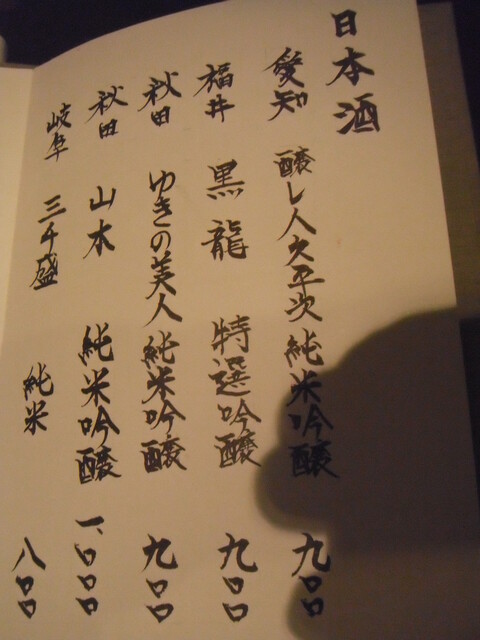 日本酒
愛知 醸し人九平次 純米吟醸 九〇〇
福井 黒龍 特選吟醸 九〇〇
秋田 ゆきの美人 純米吟醸 九〇〇
秋田 山本 純米吟醸 一、〇〇〇
岐阜 三千盛 純米 八〇〇